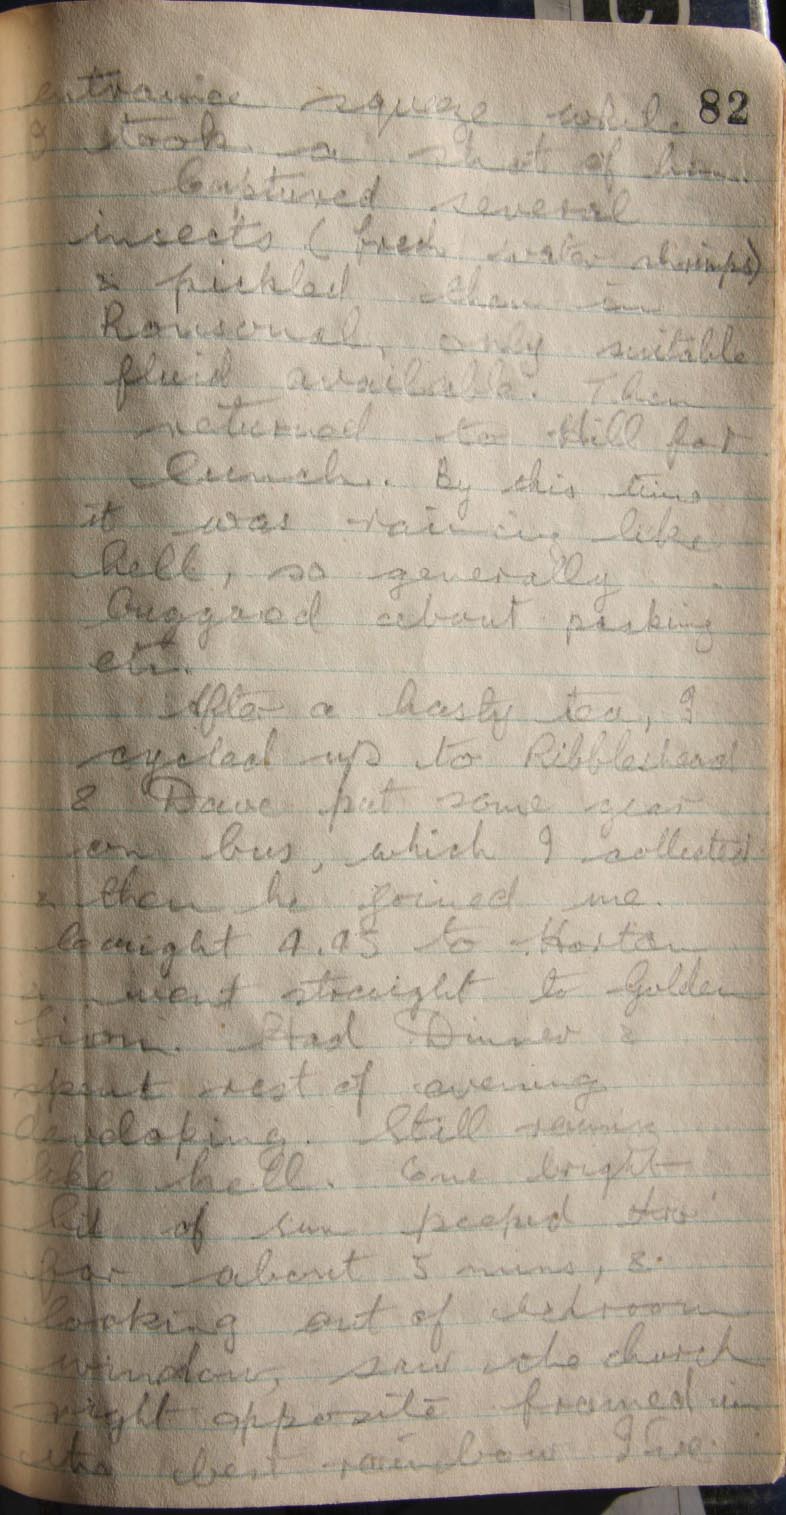 82
entrance squeeze while
I took a shot of him.
Captured several
insects (fresh water shrimps)
& pickled them in
Ronsonol, only suitable
fluid available. Then
returned to Hill for
lunch. By this time
it was raining like
hell, so generally
buggered about packing
etc.
After a hasty tea, I
cycled up to Ribblehead
& Dave put some gear
on bus, which I collected
& then he joined me.
Caught 4.45 to Horton
& went straight to Golden
Lion. Had Dinner &
spent rest of evening
developing. Still raining
like hell. One bright
bit of sun peeped thro'
for about 5 mins, &
looking out of bedroom
window, saw the church
right opposite framed in
the best rainbow I've